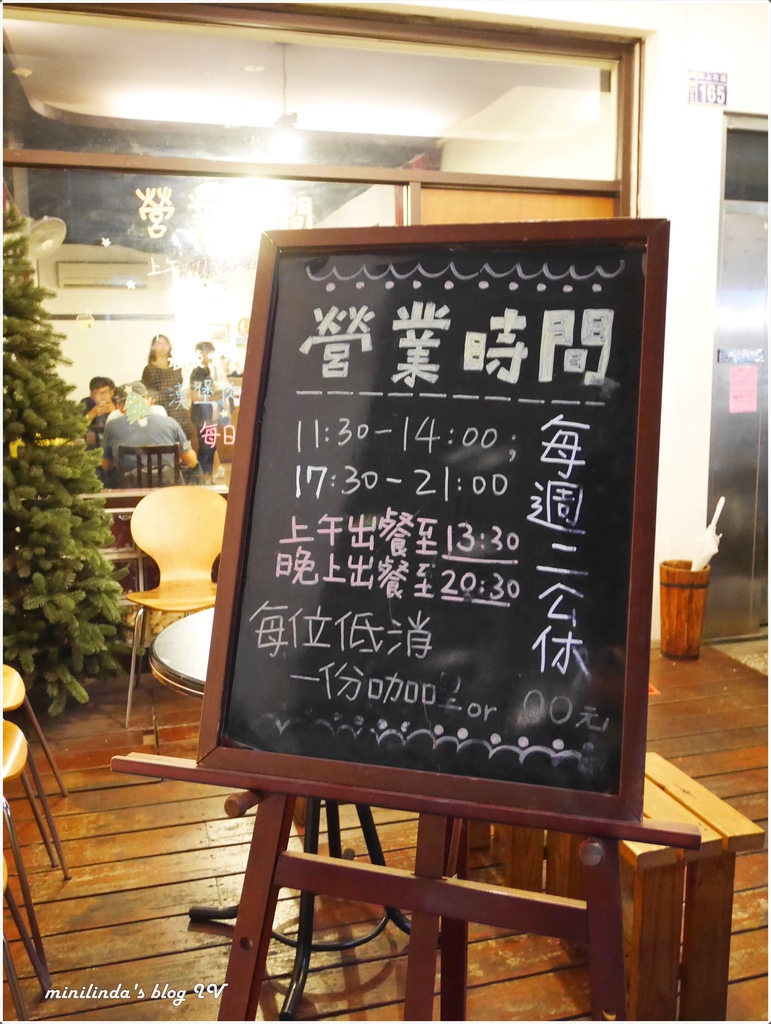 165
營 間
上午
漢堡
每日
營業時間
11:30-14:00;
17:30-21:00
上午出餐至13:30
晚上出餐至20:30
每位低消
一份咖哩or 00元
每週二公休
minilinda's blog IV